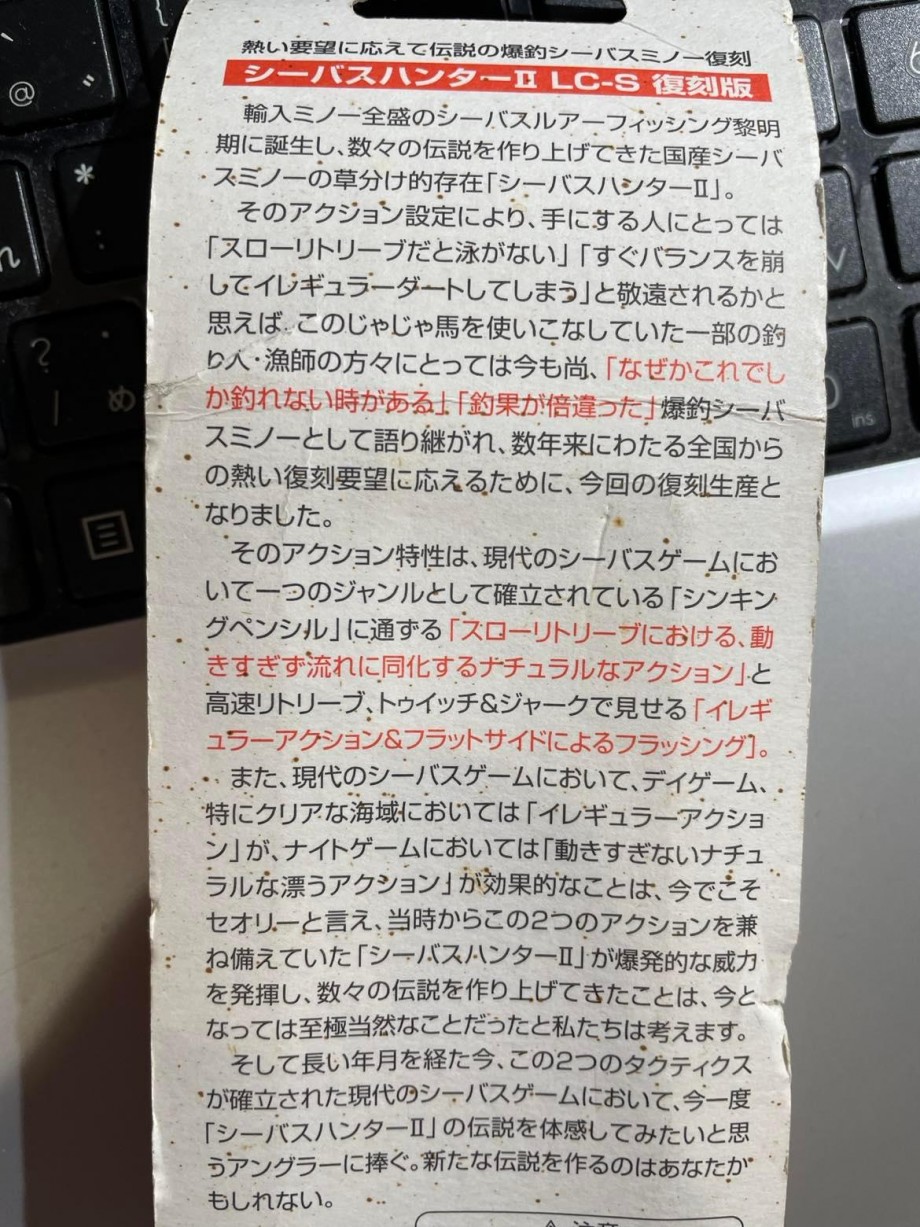 熱い要望に応えて伝説の爆釣シーバスミノー復刻
シーバスハンターⅡ LC-S 復刻版
輸入ミノー全盛のシーバスルアーフィッシング黎明
期に誕生し、数々の伝説を作り上げてきた国産シーバ
スミノーの草分け的存在「シーバスハンターⅡ」。
そのアクション設定により、手にする人にとっては
「スローリトリーブだと泳がない」「すぐバランスを崩
してイレギュラーダートしてしまう」と敬遠されるかと
思えば、このじゃじゃ馬を使いこなしていた一部の釣
り人・漁師の方々にとっては今も尚、「なぜかこれでし
か釣れない時がある」、「釣果が倍違った」爆釣シーバ
スミノーとして語り継がれ、数年来にわたる全国から
の熱い復刻要望に応えるために、今回の復刻生産と
なりました。
そのアクション特性は、現代のシーバスゲームにお
いて一つのジャンルとして確立されている「シンキン
グペンシル」に通ずる「スローリトリーブにおける、動
きすぎず流れに同化するナチュラルなアクション」と
高速リトリーブ、トゥイッチ&ジャークで見せる「イレギ
ュラーアクション&フラットサイドによるフラッシング]。
また、現代のシーバスゲームにおいて、デイゲーム、
特にクリアな海域においては「イレギュラーアクショ
ン」が、ナイトゲームにおいては「動きすぎないナチュ
ラルな漂うアクション」が効果的なことは、今でこそ
セオリーと言え、当時からこの2つのアクションを兼
ね備えていた「シーバスハンターⅡ」が爆発的な威力
を発揮し、数々の伝説を作り上げてきたことは、今と
なっては至極当然なことだったと私たちは考えます。
そして長い年月を経た今、この2つのタクティクス
が確立された現代のシーバスゲームにおいて、今一度
「シーバスハンターⅡ」の伝説を体感してみたいと思
うアングラーに捧ぐ。新たな伝説を作るのはあなたか
もしれない。
@
*
:
?
/
め
れ
ins